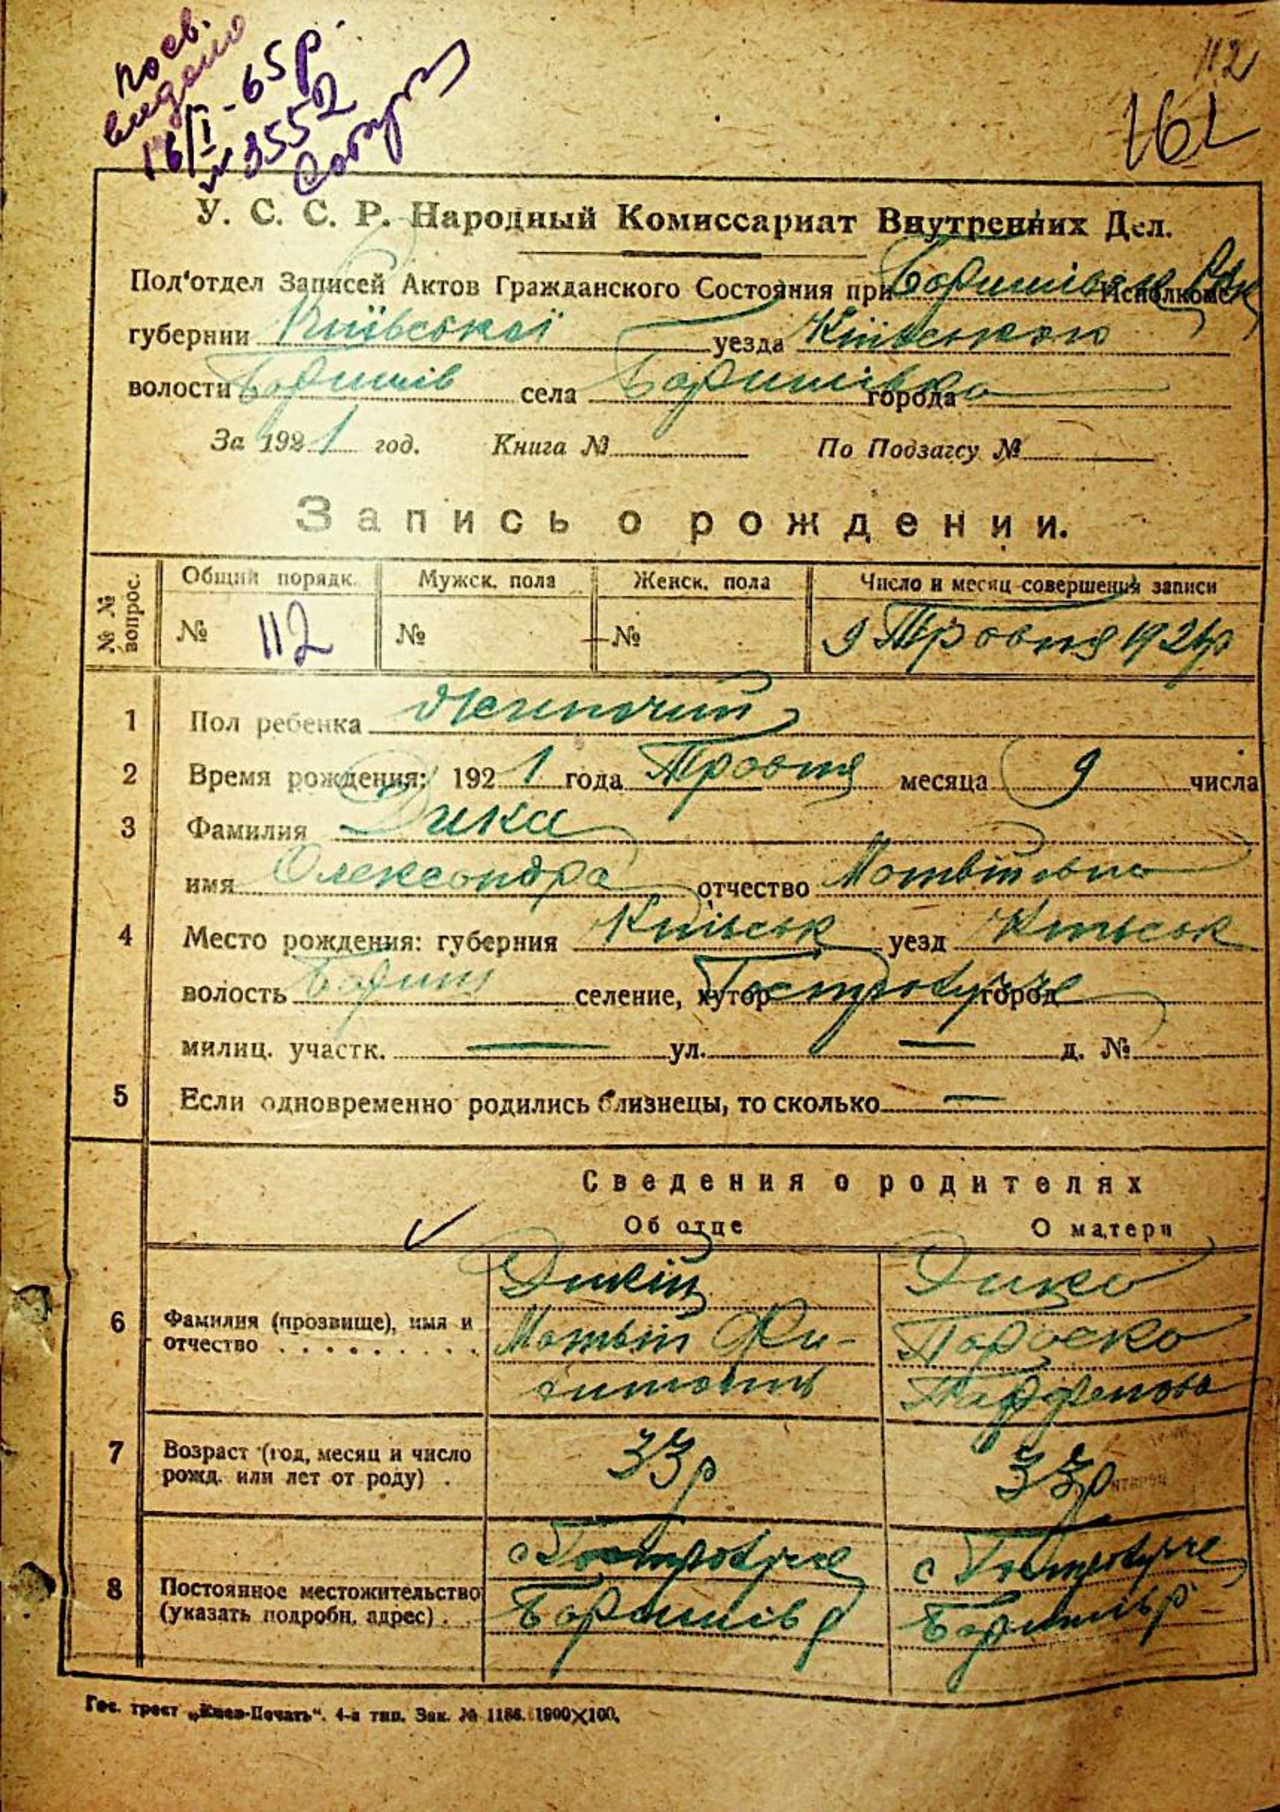 посв.
видано
16/I - 65р.
№ 3552
112
161
У. С. С. Р. Народный Комиссариат Внутренних Дел.
Под'отдел Записей Актов Гражданского Состояния при Исполкоме
губернии Київської уезда Київського
волости Баришів села Баришівка города
За 1921 год. Книга № По Подзагсу №
Запись о рождении.
№ № вопрос. Общий порядк. Мужск. пола Женск. пола Число и месяц совершения записи
№ 112 № № 9 Травня 1921р
1 Пол ребенка Жіночий
2 Время рождения: 1921 года Травня месяца 9 числа
3 Фамилия Дика
имя Олександра отчество Матвіївна
4 Место рождения: губерния Київськ уезд Київськ
волость Бориш селение, хутор Гостролуччє город
милиц. участк. — ул. — д. №
5 Если одновременно родились близнецы, то сколько —
Сведения о родителях
Об отце О матери
Дикій Дика
6 Фамилия (прозвище), имя и отчество Матвій Параска
7 Возраст (год, месяц и число рожд. или лет от роду) 33р 33р
с Гостролуччє с Гостролуччє
8 Постоянное местожительство (указать подробн. адрес) Баришів р Баришів р
Гос. трест „Киев-Печать". 4-я тип. Зак. № 1186. 1900×100.